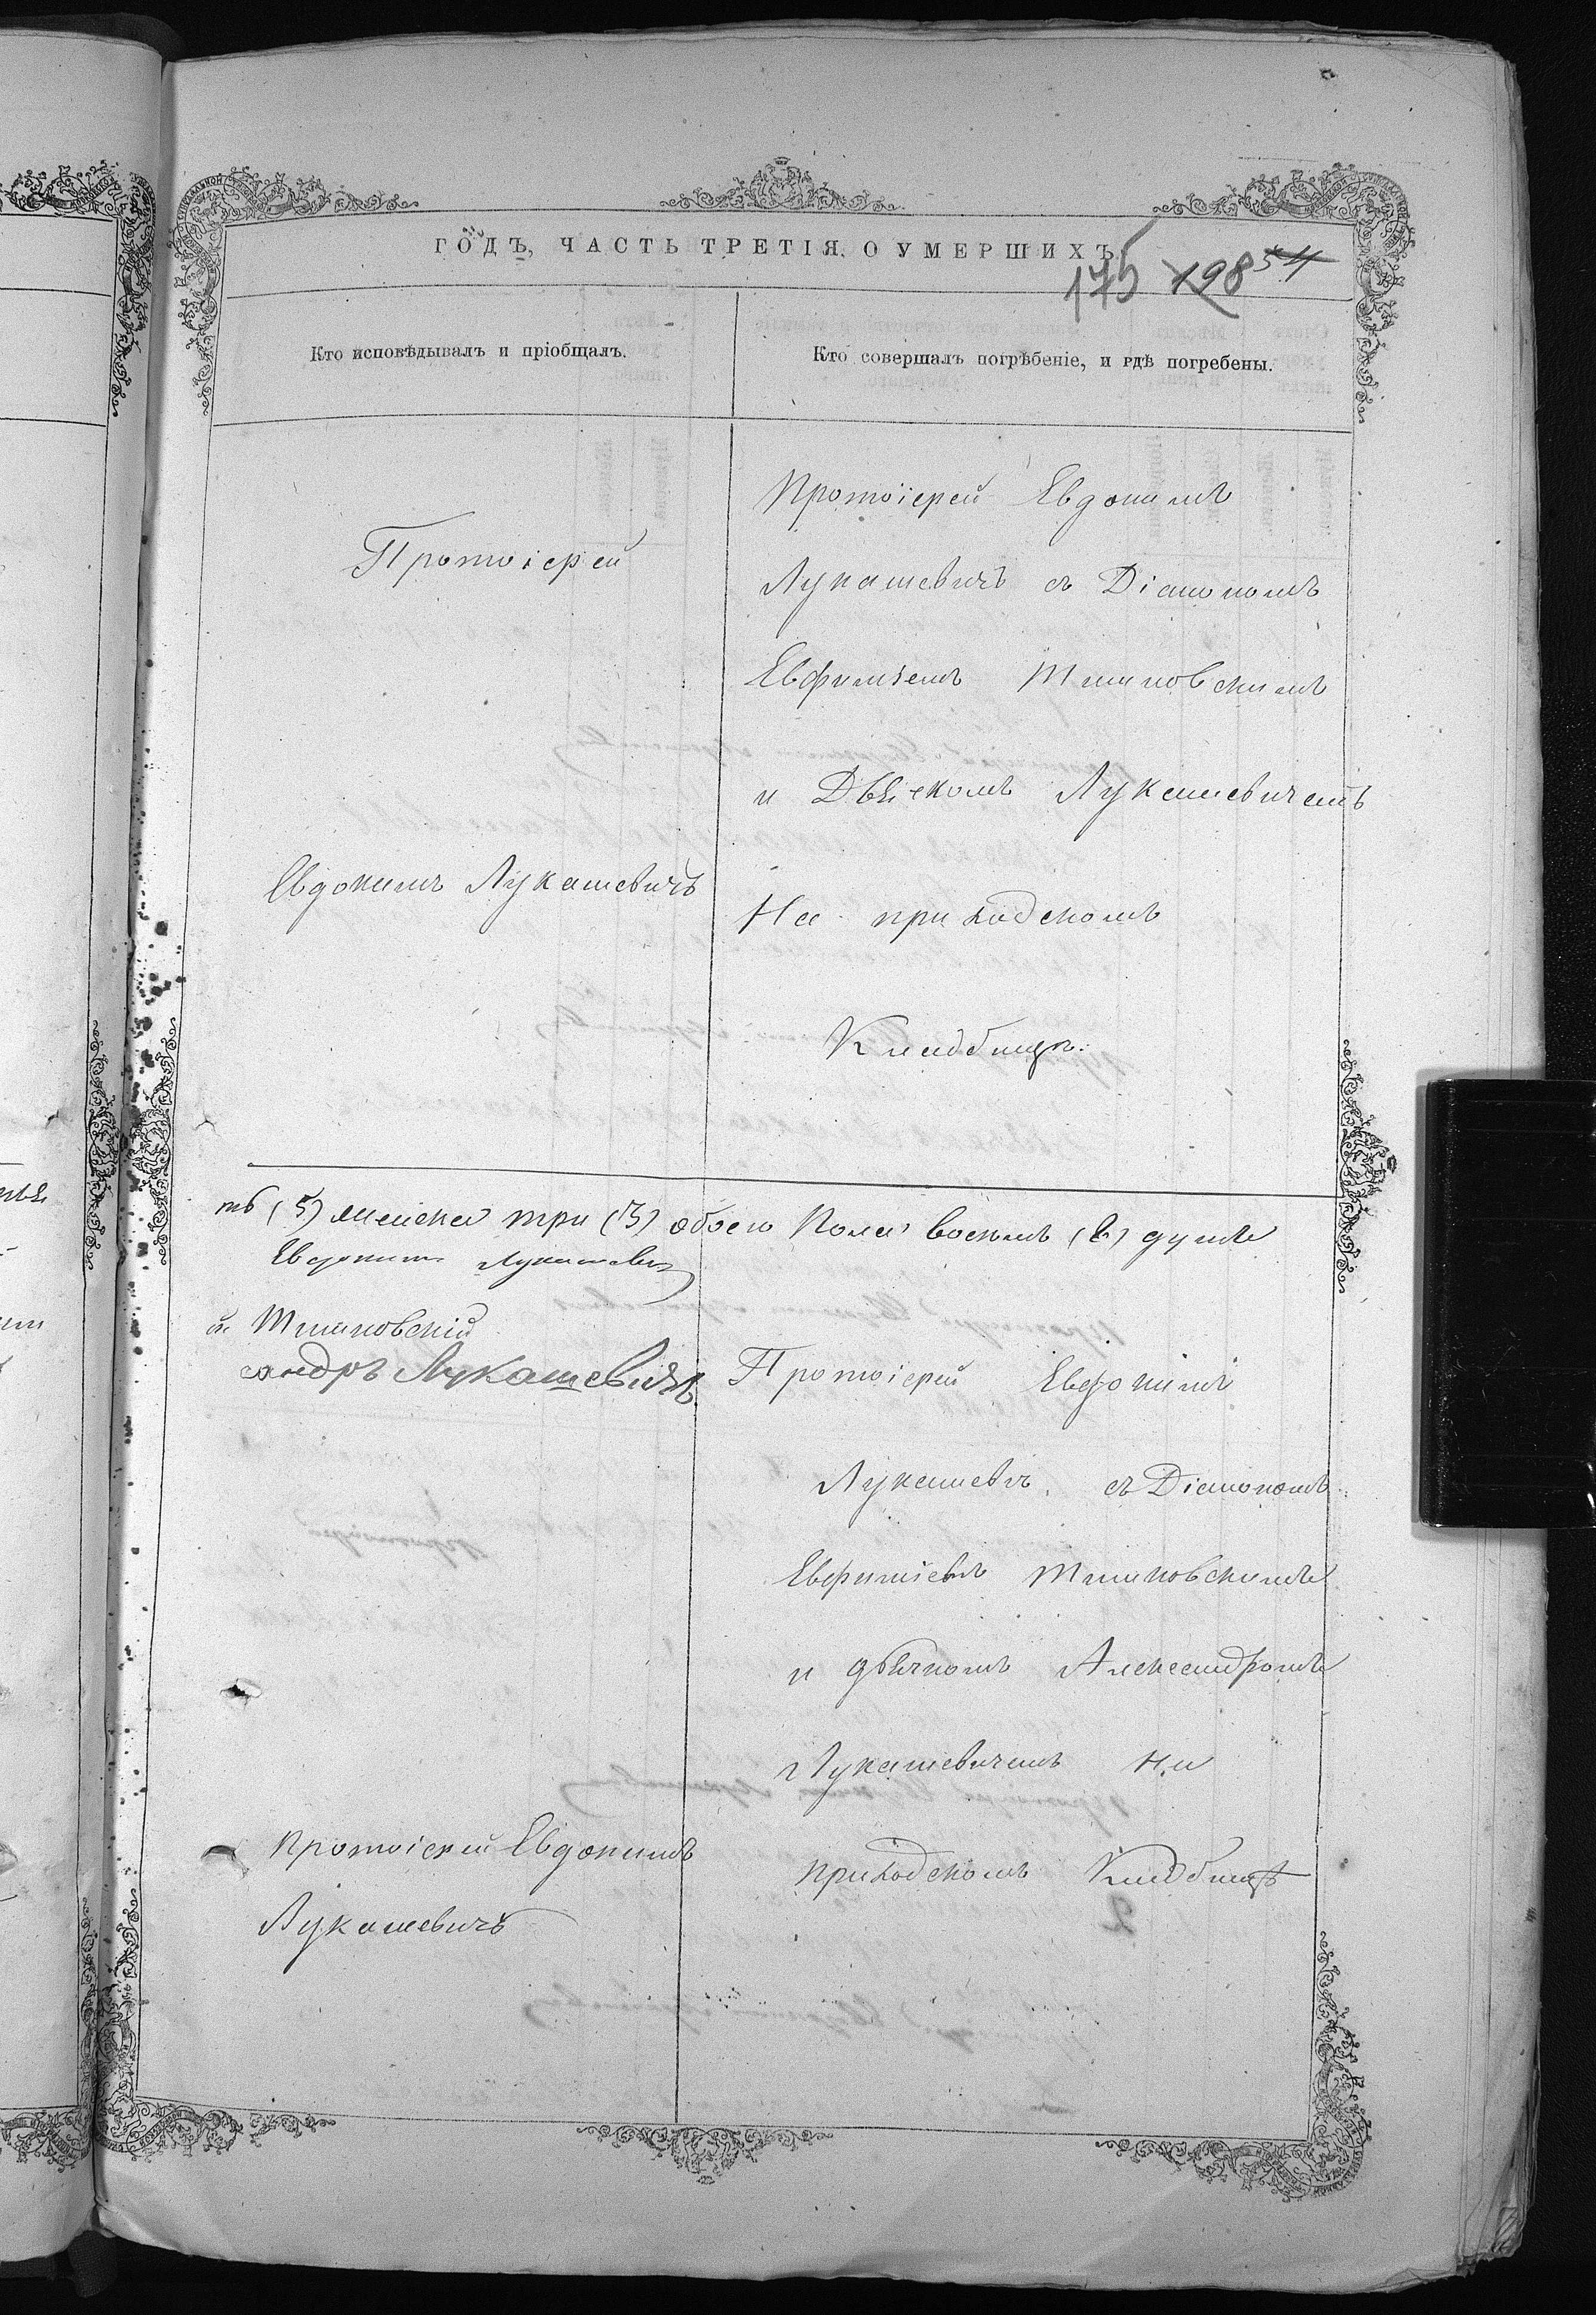 ГОДЪ, ЧАСТЬ ТРЕТІЯ, О УМЕРШИХЪ
175 198 54
Кто исповѣдывалъ и пріобщалъ.
Кто совершалъ погрѣбеніе, и гдѣ погребены.
Протоіерей
Евдокимъ Лукашевичъ
Протоіерей Евдокимъ
Лукашевичъ съ Діакономъ
Евфиміемъ Тимиковскимъ
и Дьячкомъ Лукашевичемъ
На приходскомъ
Кладбищѣ.
ть (5) женска три (3) обоего пола восемь (8) душъ
Евдокимъ Лукашевичъ
й
сандръ Лукашевичъ
Протоіерей Евдокимъ
Лукашевичъ
Протоіерей Евдокимъ
Лукашевичъ съ Діакономъ
Евфиміемъ
и дьячкомъ Александромъ
Лукашевичемъ на
приходскомъ Кладбищѣ